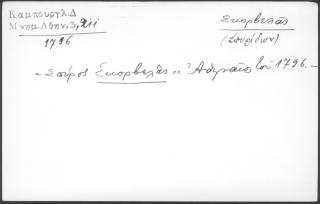 Καμπούργλ.Δ
Μνημ.Αθην.3,211
1796
Σκορβελᾶς
(Σπυρίδων)
"Σπῖρος Σκορβελᾶς" Ἀθηναῖος τοῦ 1796.-